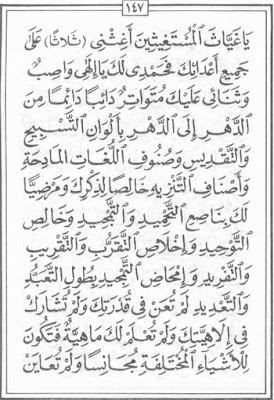 ١٤٧
يَا غِيَاثَ الْمُسْتَغِيثِينَ أَغِثْنِى (ثَلَاثًا) عَلَى
جَمِيعِ أَعْدَائِكَ فَحَمْدِى لَكَ يَا إِلٰهِى وَاصِبٌ
وَثَنَائِى عَلَيْكَ مُتَوَاتِرٌ دَائِبًا دَائِمًا مِنَ
الدَّهْرِ إِلَى الدَّهْرِ بِأَلْوَانِ التَّسْبِيحِ
وَالتَّقْدِيسِ وَصُنُوفِ اللُّغَاتِ الْمَادِحَةِ
وَأَصْنَافِ التَّنْزِيهِ خَالِصًا لِذِكْرِكَ وَمَرْضِيًّا
لَكَ بِنَاصِعِ التَّحْمِيدِ وَالتَّمْجِيدِ وَخَالِصِ
التَّوْحِيدِ وَإِخْلَاصِ التَّقَرُّبِ وَالتَّقْرِيبِ
وَالتَّفْرِيدِ وَإِمْحَاضِ التَّمْجِيدِ بِطُولِ التَّعَبُّدِ
وَالتَّعْدِيدِ لَمْ تُعَنْ فِى قُدْرَتِكَ وَلَمْ تُشَارَكْ
فِى إِلَاهِيَّتِكَ وَلَمْ تُعْلَمْ لَكَ مَاهِيَّةٌ فَتَكُونَ
لِلْأَشْيَاءِ الْمُخْتَلِفَةِ مُجَانِسًا وَلَمْ تُعَايَنْ